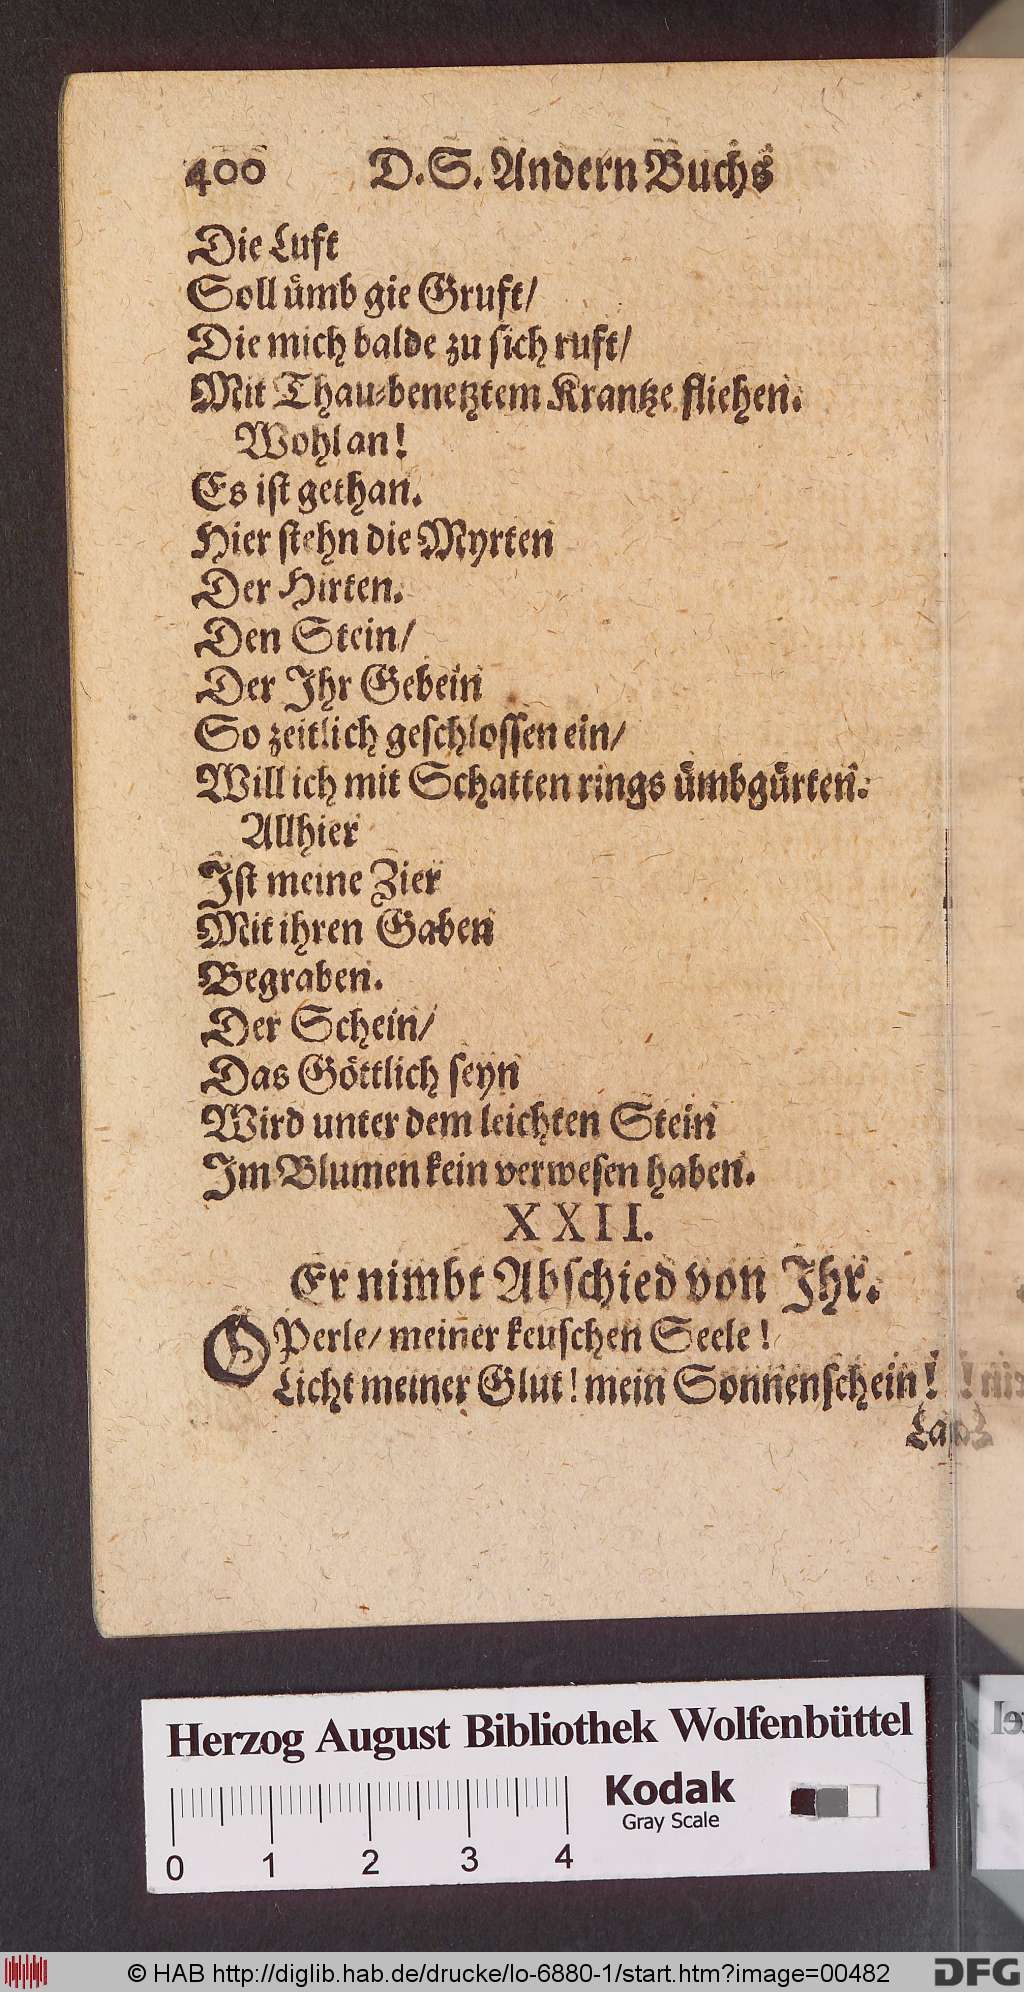 400 D. S. Andern Buchs
Die Luft
Soll ümb gie Gruft/
Die mich balde zu sich ruft/
Mit Thau-benetztem Krantze fliehen.
Wohlan!
Es ist gethan.
Hier stehn die Myrten
Der Hirten.
Den Stein/
Der Ihr Gebein
So zeitlich geschlossen ein/
Will ich mit Schatten rings ümbgürten.
Allhier
Ist meine Zier
Mit ihren Gaben
Begraben.
Der Schein/
Das Göttlich seyn
Wird unter dem leichten Stein
Im Blumen kein verwesen haben.
XXII.
Er nimbt Abschied von Ihr.
O Perle/ meiner keuschen Seele!
Licht meiner Glut! mein Sonnenschein!
Herzog August Bibliothek Wolfenbüttel
Kodak
Gray Scale
0 1 2 3 4
© HAB http://diglib.hab.de/drucke/lo-6880-1/start.htm?image=00482
DFG